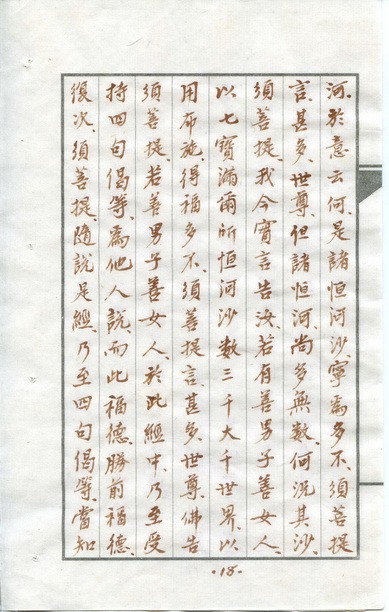 河、於意云何、是諸恒河沙、寧為多不、須菩提
言、甚多、世尊、但諸恒河、尚多無數、何況其沙、
須菩提、我今實言告汝、若有善男子善女人、
以七寶滿爾所恒河沙數三千大千世界、以
用布施、得福多不、須菩提言、甚多、世尊、佛告
須菩提、若善男子善女人、於此經中、乃至受
持四句偈等、為他人說、而此福德、勝前福德、
復次、須菩提、隨說是經、乃至四句偈等、當知
·18·